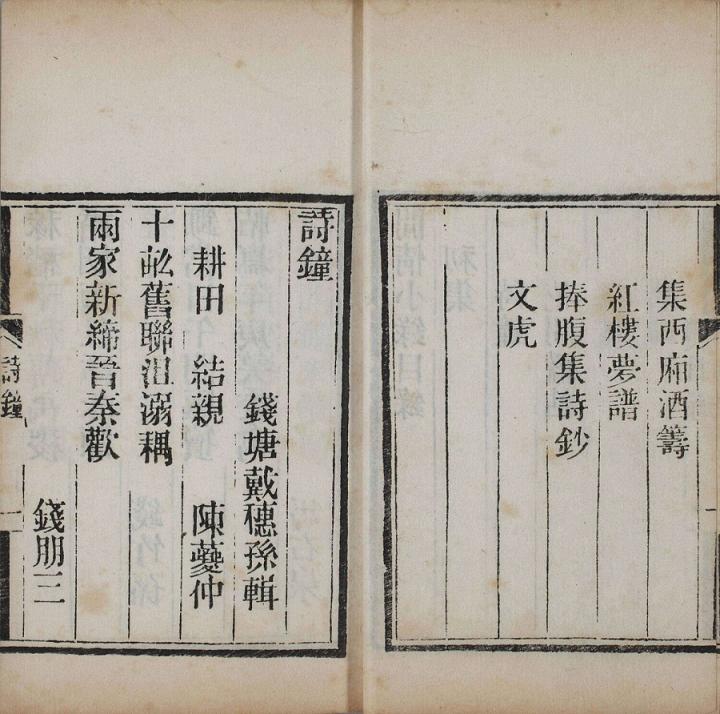 集西廂酒籌
紅樓夢譜
捧腹集詩鈔
文虎
詩鐘
錢塘戴穗孫輯
耕田　結親　陳夔仲
十畝舊聯沮溺耦
兩家新締晉秦歡
錢朋三
詩鐘
一